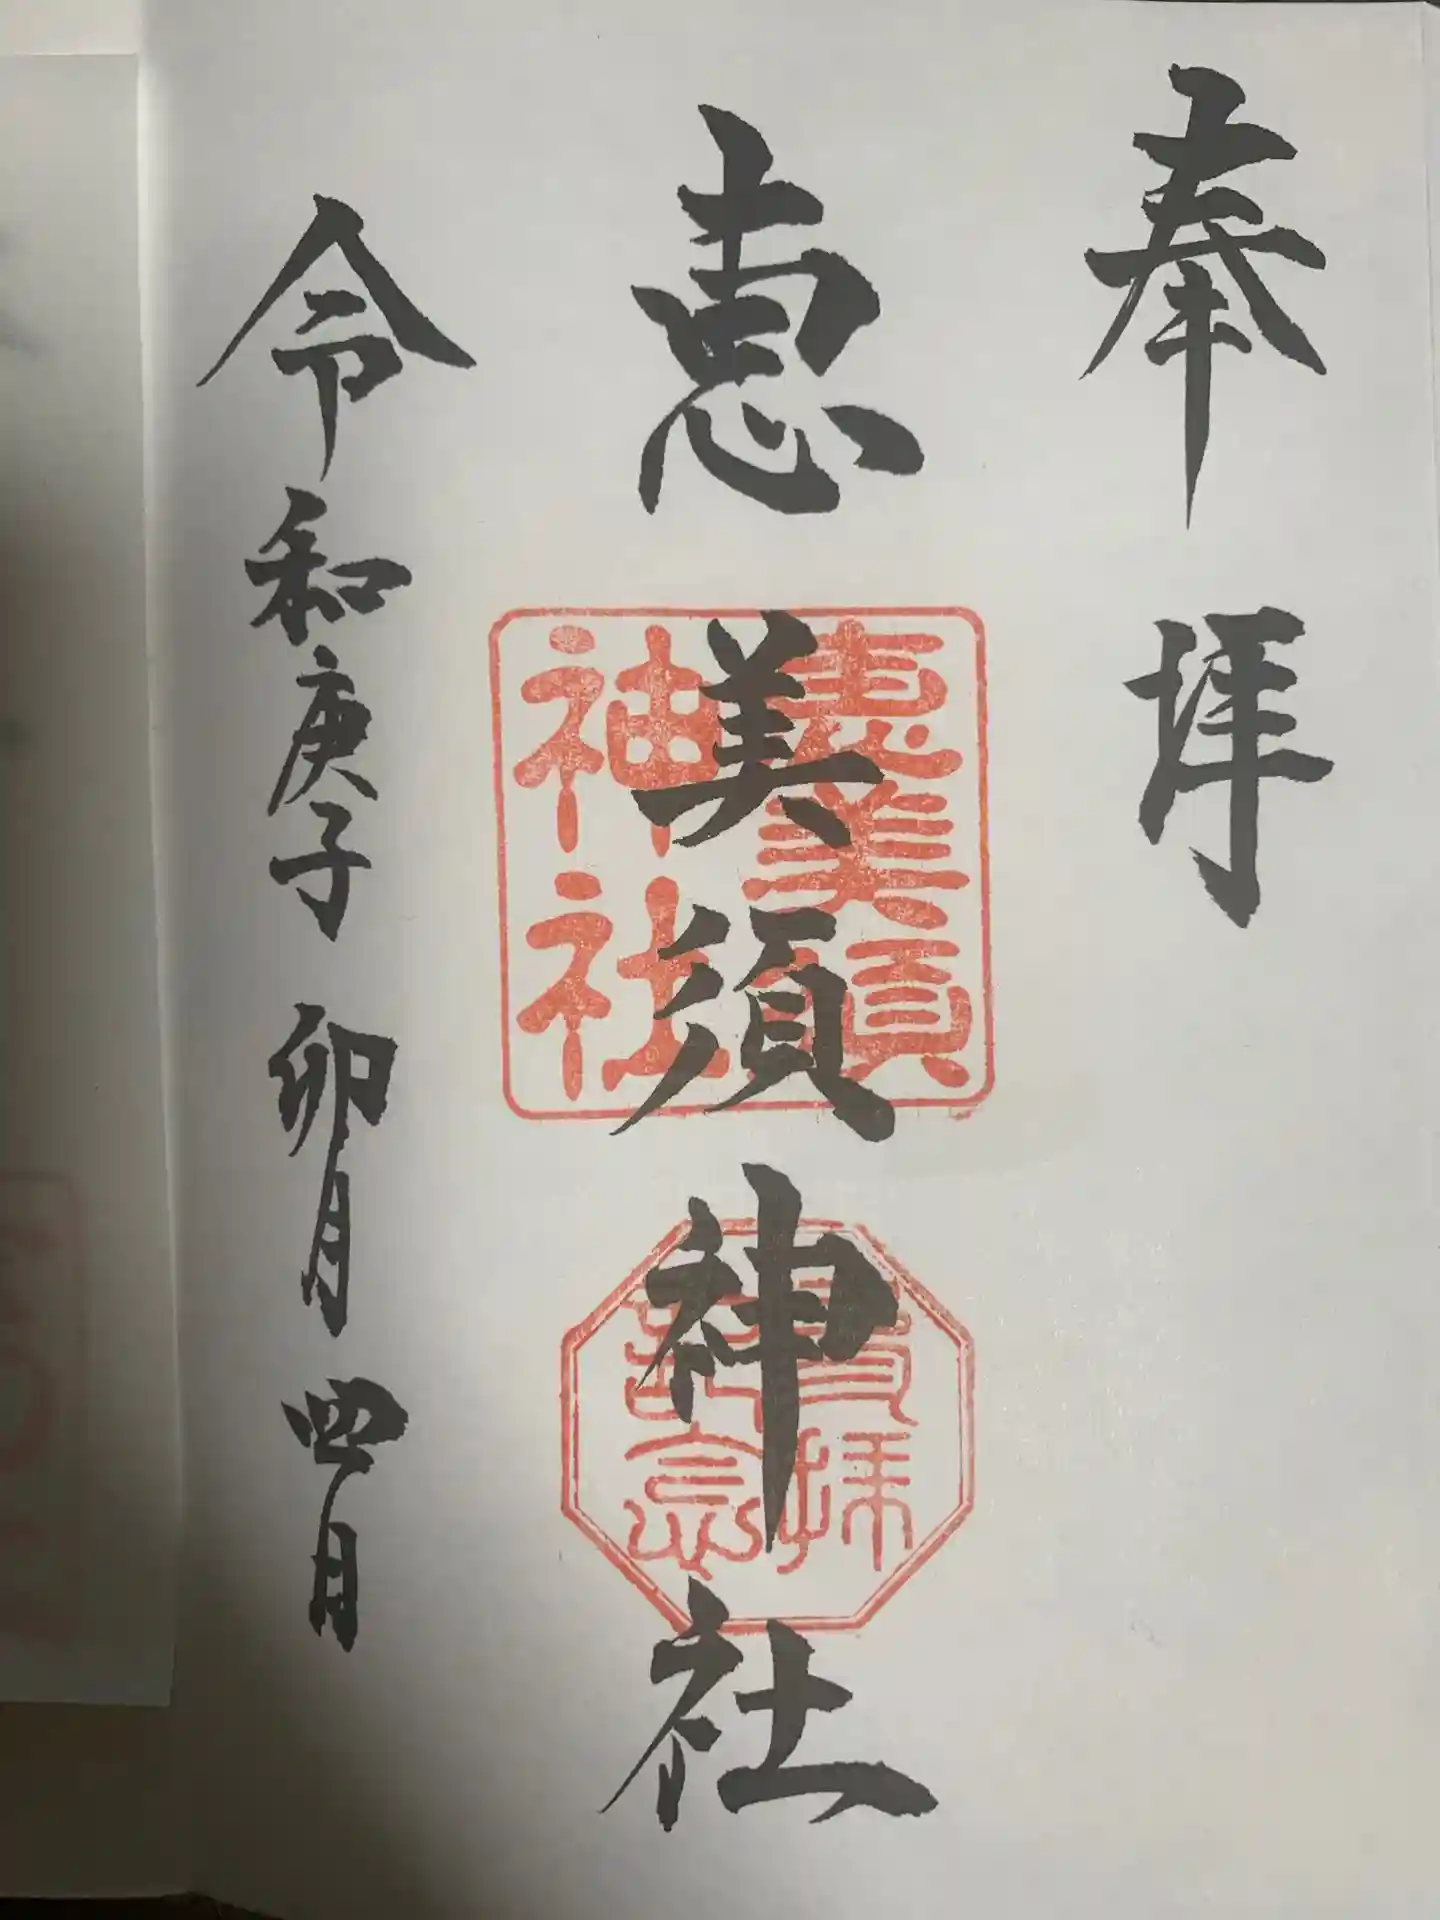 奉拝
恵美須神社
恵美須
神社
参拝
記念
令和庚子 卯月 四日